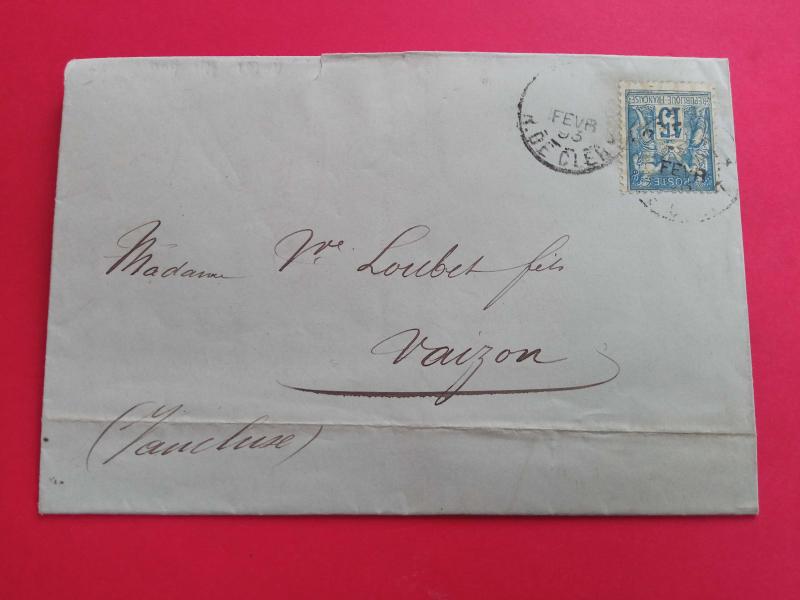 FEVR
93
R. DE CLER
RÉPUBLIQUE FRANÇAISE
15
POSTES
FEVR
Madame Vve Loubet fils
Vaizon
(Vaucluse)